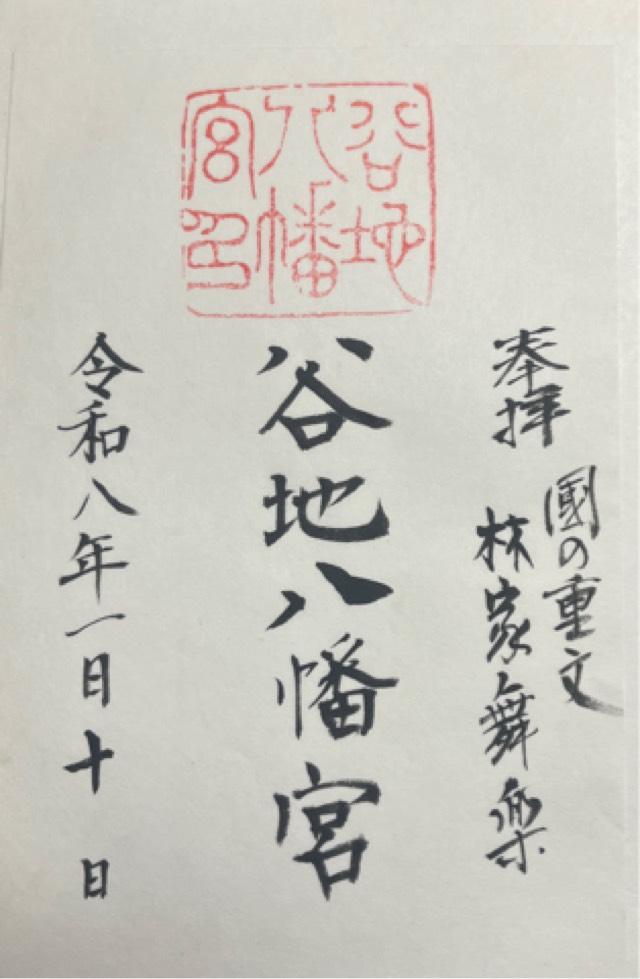 谷地
八幡
宮印
奉拝
國の重文
林家舞楽
谷地八幡宮
令和八年一日十日